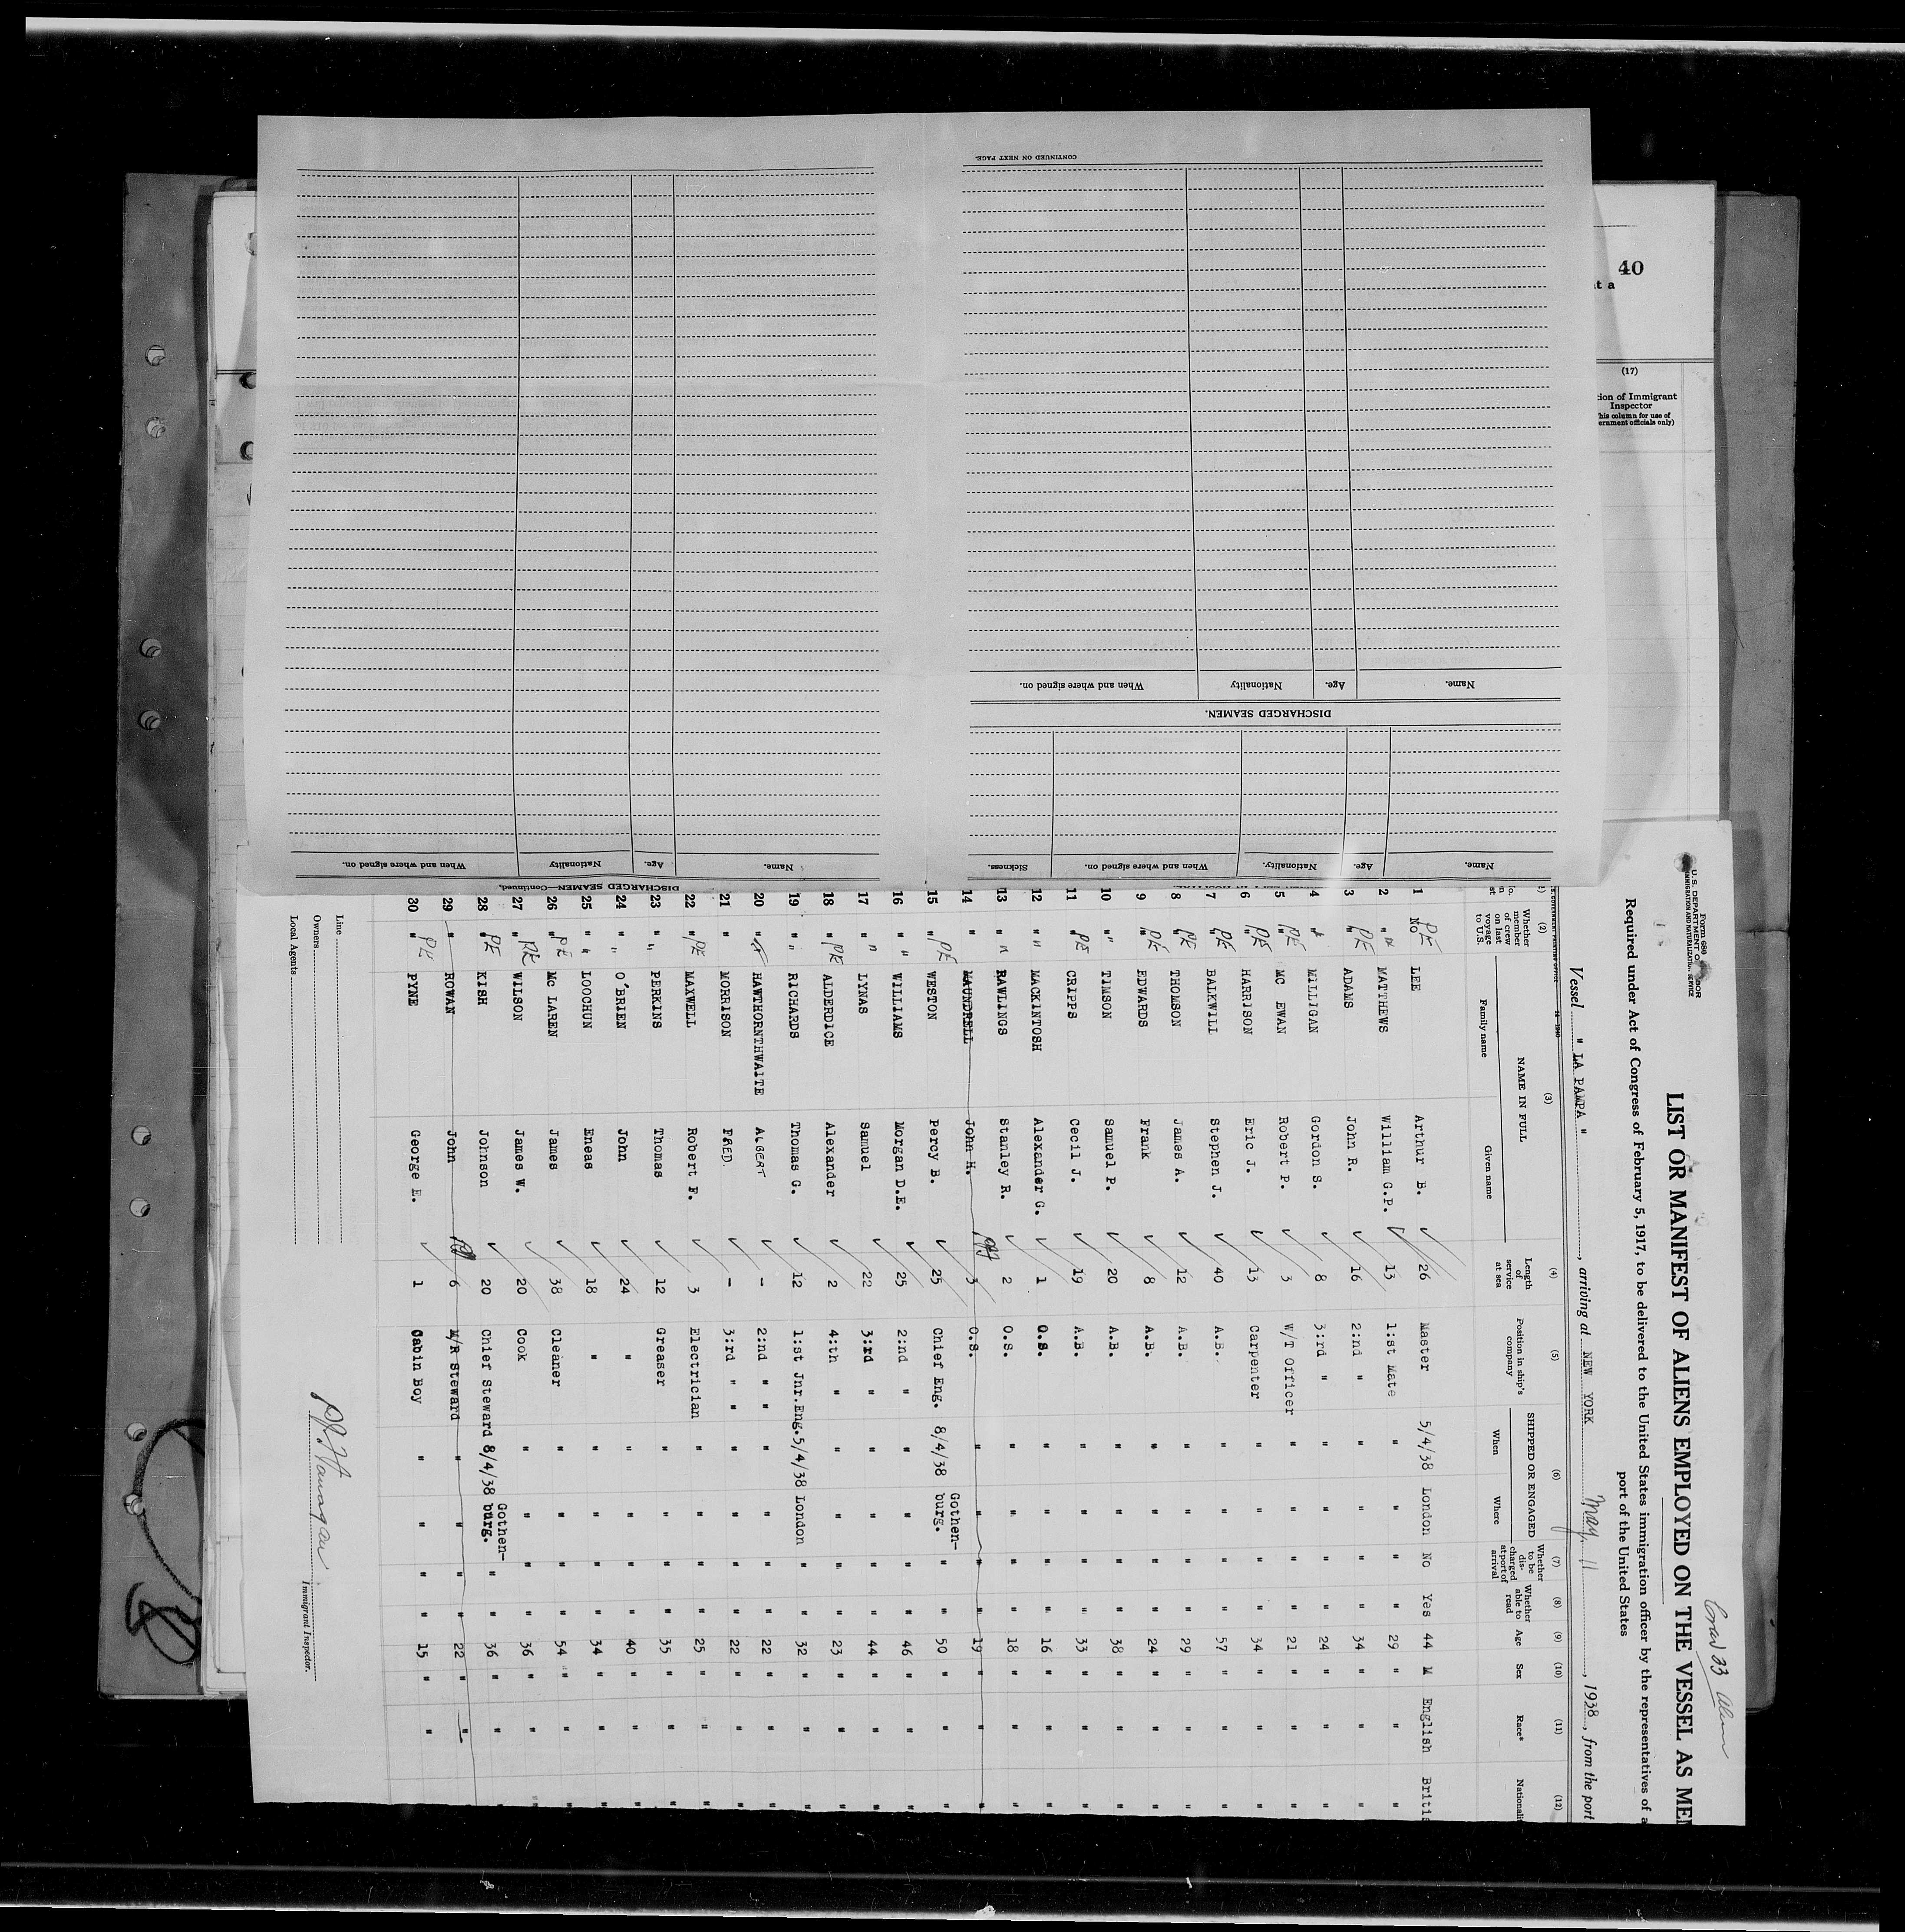 40
t a
(17)
ion of Immigrant
Inspector
his column for use of
ernment officials only)
CONTINUED ON NEXT PAGE.
Name. Age. Nationality When and where signed on.
DISCHARGED SEAMEN.
Name. Age. Nationality. When and where signed on. Sickness.
DISCHARGED SEAMEN—Continued.
Name. Age. Nationality When and where signed on.
Crew 33
Form 680
U. S. DEPARTMENT OF LABOR
IMMIGRATION AND NATURALIZATION SERVICE
LIST OR MANIFEST OF ALIENS EMPLOYED ON THE VESSEL AS MEM
Required under Act of Congress of February 5, 1917, to be delivered to the United States immigration officer by the representatives of a
port of the United States
Vessel " LA PAMPA ", arriving at NEW YORK May 11, 1938, from the port
(2) (3) (4) (5) (6) (7) (8) (9) (10) (11) (12)
Whether member of crew on last voyage to U.S. NAME IN FULL Family name Given name Length of service at sea Position in ship's company SHIPPED OR ENGAGED When Where Whether to be discharged at port of arrival Whether able to read Age Sex Race* Nationali
1 No PE LEE Arthur B. ✓ 26 Master 5/4/38 London No Yes 44 M English Britis
2 " MATTHEWS William G.P. ✓ 13 1:st Mate " " " " 29 " " "
3 " PE ADAMS John R. ✓ 16 2:nd " " " " " 34 " " "
4 " MILLIGAN Gordon S. ✓ 8 3:rd " " " " " 24 " " "
5 " PE MC EWAN Robert P. ✓ 3 W/T Officer " " " " 21 " " "
6 " PE HARRISON Eric J. ✓ 13 Carpenter " " " " 34 " " "
7 " PE BALKWILL Stephen J. ✓ 40 A.B. " " " " 57 " " "
8 " PE THOMSON James A. ✓ 12 A.B. " " " " 29 " " "
9 " PE EDWARDS Frank ✓ 8 A.B. " " " " 24 " " "
10 " " TIMSON Samuel P. ✓ 20 A.B. " " " " 38 " " "
11 " PE CRIPPS Cecil J. ✓ 19 A.B. " " " " 33 " " "
12 " " MACKINTOSH Alexander G. ✓ 1 O.S. " " " " 16 " " "
13 " " RAWLINGS Stanley R. ✓ 2 O.S. " " " " 18 " " "
14 " MAUNDRELL John H. 3 O.S. " " " " 19 " " "
15 " PE WESTON Percy B. ✓ 25 Chief Eng. 8/4/38 Gothen-burg. " " 50 " " "
16 " " WILLIAMS Morgan D.E. ✓ 25 2:nd " " " " " 46 " " "
17 " " LYNAS Samuel ✓ 22 3:rd " " " " " 44 " " "
18 " PE ALDERDICE Alexander ✓ 2 4:th " " " " " 23 " " "
19 " " RICHARDS Thomas G. ✓ 12 1:st Jnr.Eng. 5/4/38 London " " 32 " " "
20 " HAWTHORNTHWAITE ALBERT ✓ - 2:nd " " " " " " 22 " " "
21 " MORRISON FRED. ✓ - 3:rd " " " " " " 22 " " "
22 " PE MAXWELL Robert F. ✓ 3 Electrician " " " " 25 " " "
23 " " PERKINS Thomas ✓ 12 Greaser " " " " 35 " " "
24 " " O'BRIEN John ✓ 24 " " " " " 40 " " "
25 " " LOOCHUN Eneas ✓ 18 " " " " " 34 " " "
26 " PE Mc LAREN James ✓ 38 Cleaner " " " " 54 " " "
27 " PE WILSON James W. ✓ 20 Cook " " " " 36 " " "
28 " PE KISH Johnson ✓ 20 Chief Steward 8/4/38 Gothen-burg. " " 36 " " "
29 " ROWAN John 6 M/R Steward " " " " 22 " " "
30 " PE PYNE George E. ✓ 1 Cabin Boy " " " " 15 " " "
Line
Owners
Local Agents
Immigrant Inspector.